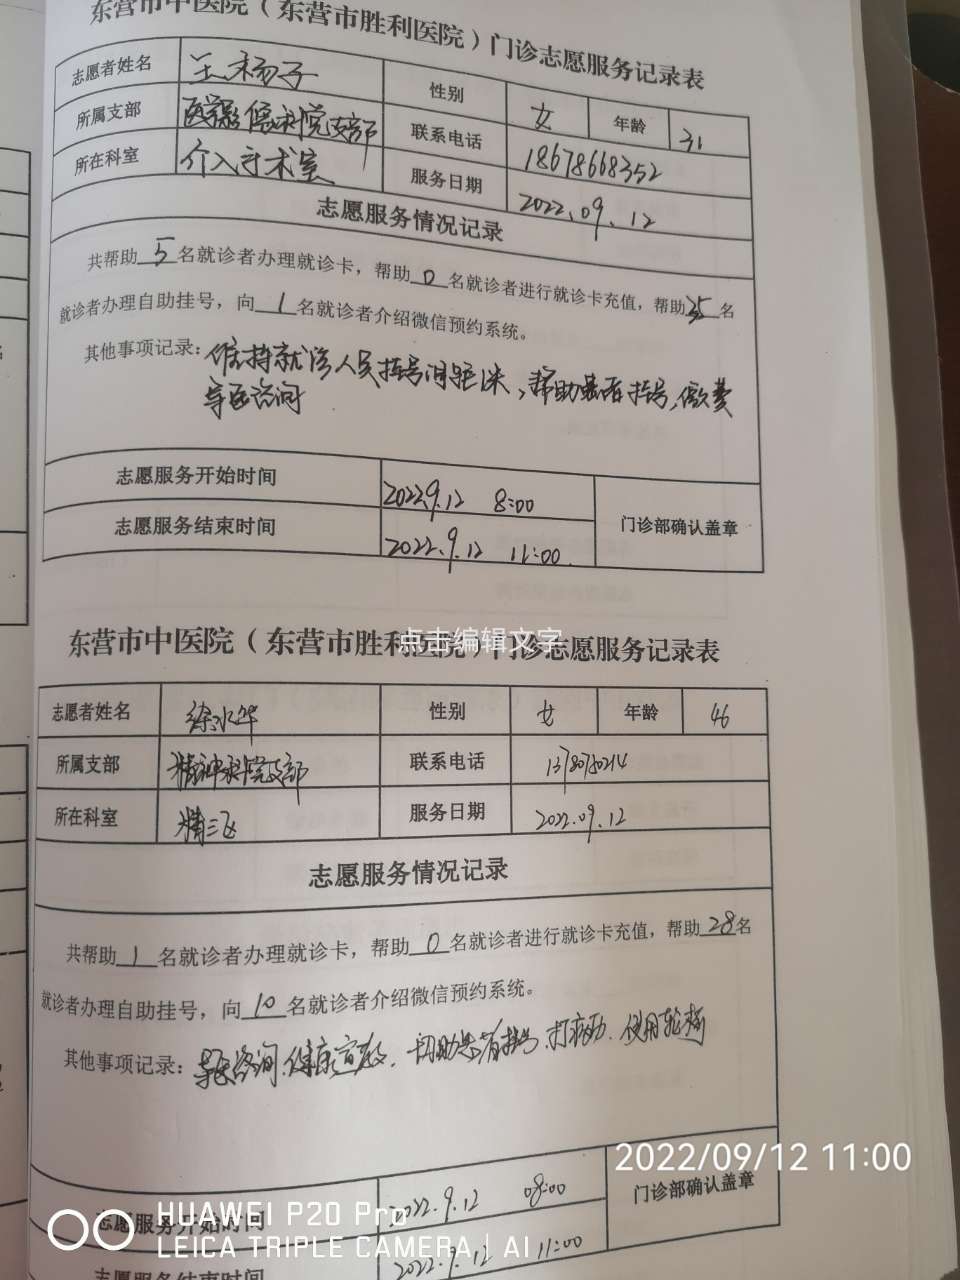 东营市中医院（东营市胜利医院）门诊志愿服务记录表
志愿者姓名 王杨子 性别 女 年龄 31
所属支部 医学影像科院支部 联系电话 18678668352
所在科室 介入手术室 服务日期 2022.09.12
志愿服务情况记录
共帮助 5 名就诊者办理就诊卡，帮助 0 名就诊者进行就诊卡充值，帮助 35 名
就诊者办理自助挂号，向 1 名就诊者介绍微信预约系统。
其他事项记录：维持就诊人员挂号间距1米，帮助患者挂号，缴费
导医咨询
志愿服务开始时间 2022.9.12 8:00
门诊部确认盖章
志愿服务结束时间 2022.9.12 11:00
东营市中医院（东营市胜利医院）门诊志愿服务记录表
点击编辑文字
志愿者姓名 徐水华 性别 女 年龄 46
所属支部 精神科院支部 联系电话
所在科室 精三区 服务日期 2022.09.12
志愿服务情况记录
共帮助 1 名就诊者办理就诊卡，帮助 0 名就诊者进行就诊卡充值，帮助 28 名
就诊者办理自助挂号，向 10 名就诊者介绍微信预约系统。
其他事项记录：导医咨询.健康宣教.协助患者挂号.打病历.使用轮椅
2022/09/12 11:00
志愿服务开始时间 2022.9.12 08:00
门诊部确认盖章
HUAWEI P20 Pro
LEICA TRIPLE CAMERA | AI
志愿服务结束时间 2022.9.12 11:00